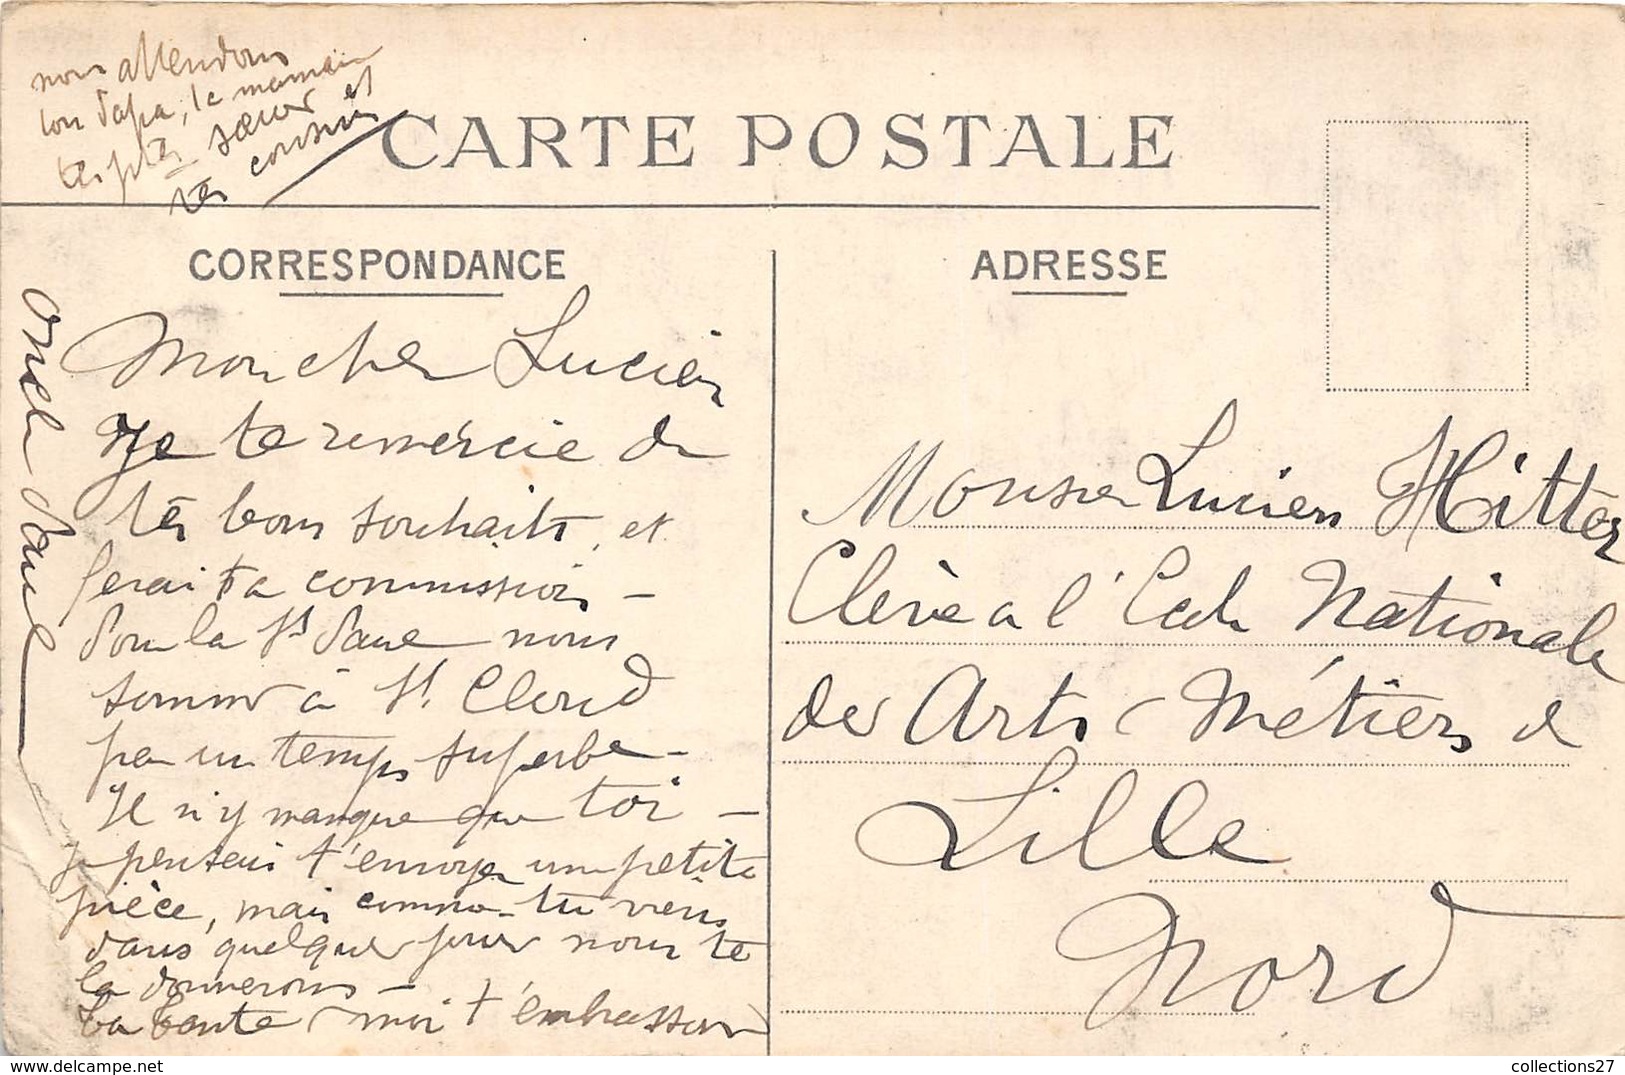 nous attendons
ton Papa, ta maman
tes ptes sœurs et
tes cousins
CARTE POSTALE
CORRESPONDANCE
ADRESSE
Mon cher Lucien
Je te remercie de
tes bons souhaits, et
ferai ta commission –
Pour la St Paul nous
sommes à St. Cloud
par un temps superbe –
Il n'y manque que toi –
je pensais t'envoyer une petite
pièce, mais comme tu viens
dans quelques jours nous te
la donnerons –
ta tante & moi t'embrassons
oncle Paul
Monsieur Lucien Hitter
Elève à l'Ecole Nationale
des Arts & Métiers de
Lille
Nord
collections27